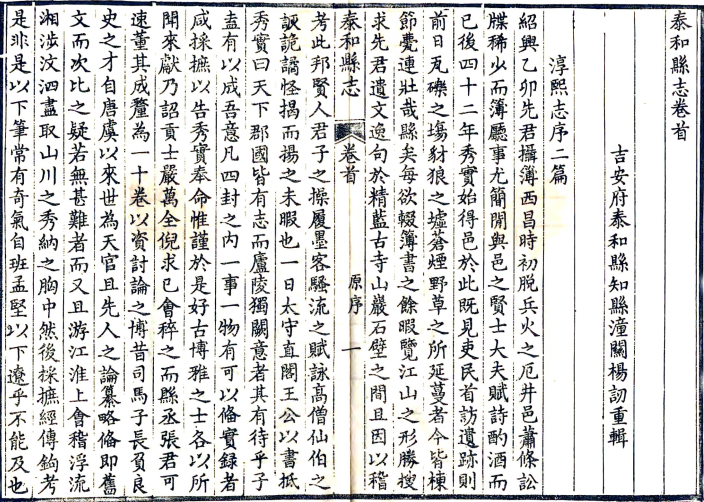 泰和縣志卷首
吉安府泰和縣知縣潼關楊訒重輯
淳熙志序二篇
紹興乙卯先君攝簿西昌時初脫兵火之厄井邑蕭條訟
牒稀少而簿廳事尤簡閒與邑之賢士大夫賦詩酌酒而
已後四十二年秀實始得邑於此既見吏民首訪遺跡則
前日瓦礫之場豺狼之墟蒼煙野草之所延蔓者今皆棟
節甍連壯哉縣矣每欲輟簿書之餘暇覽江山之形勝搜
求先君遺文逸句於精藍古寺山巖石壁之間且因以稽
泰和縣志
卷首
原序
一
考此邦賢人君子之操履墨客騷流之賦詠高僧仙伯之
詼詭譎怪揭而揚之未暇也一日太守直閣王公以書抵
秀實曰天下郡國皆有志而廬陵獨闕意者其有待乎子
盍有以成吾意凡四封之內一事一物有可以備實錄者
咸採摭以告秀實奉命惟謹於是好古博雅之士各以所
聞來獻乃詔貢士嚴萬全倪求已會稡之而縣丞張君可
速董其成釐為一十卷以資討論之博昔司馬子長負良
史之才自唐虞以來世為天官且先人之論纂略備即舊
文而次比之疑若無甚難者而又且游江淮上會稽浮沅
湘涉汶泗盡取山川之秀納之胸中然後採摭經傳鉤考
是非是以下筆常有奇氣自班孟堅以下遼乎不能及也